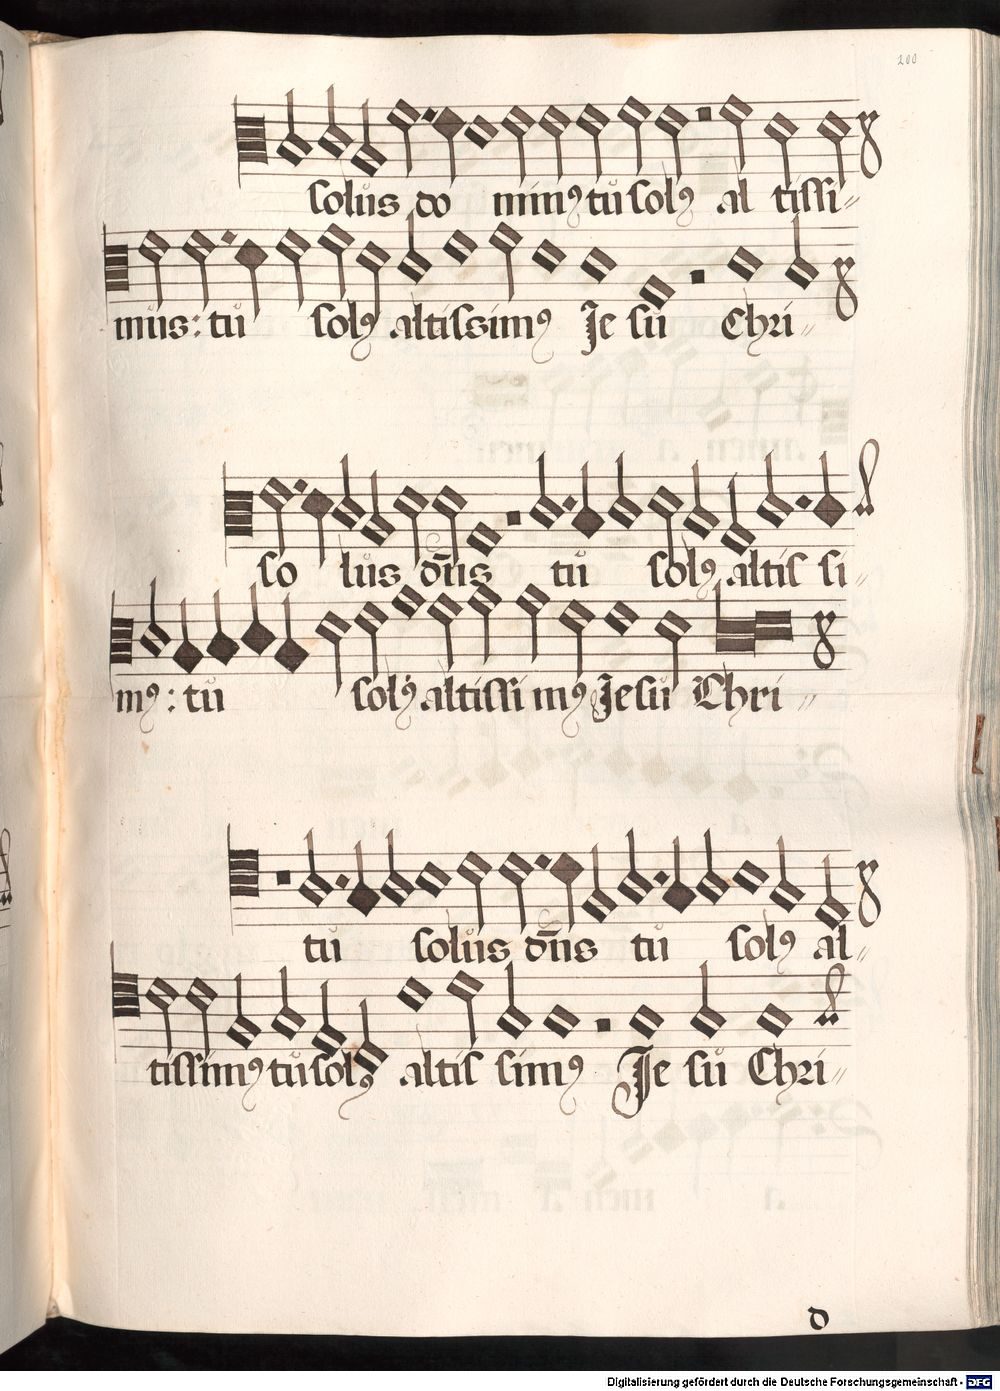 200
solus do minꝰ tu solꝰ al tissi⸗
mus: tu solꝰ altissimꝰ Je su Chri⸗
so lus dn̄s tu solꝰ altis si⸗
mꝰ: tu solꝰ altissi mꝰ Jesu Chri⸗
tu solus dn̄s tu solꝰ al⸗
tissimꝰ tu solꝰ altis simꝰ Je su Chri⸗
d
Digitalisierung gefördert durch die Deutsche Forschungsgemeinschaft - DFG